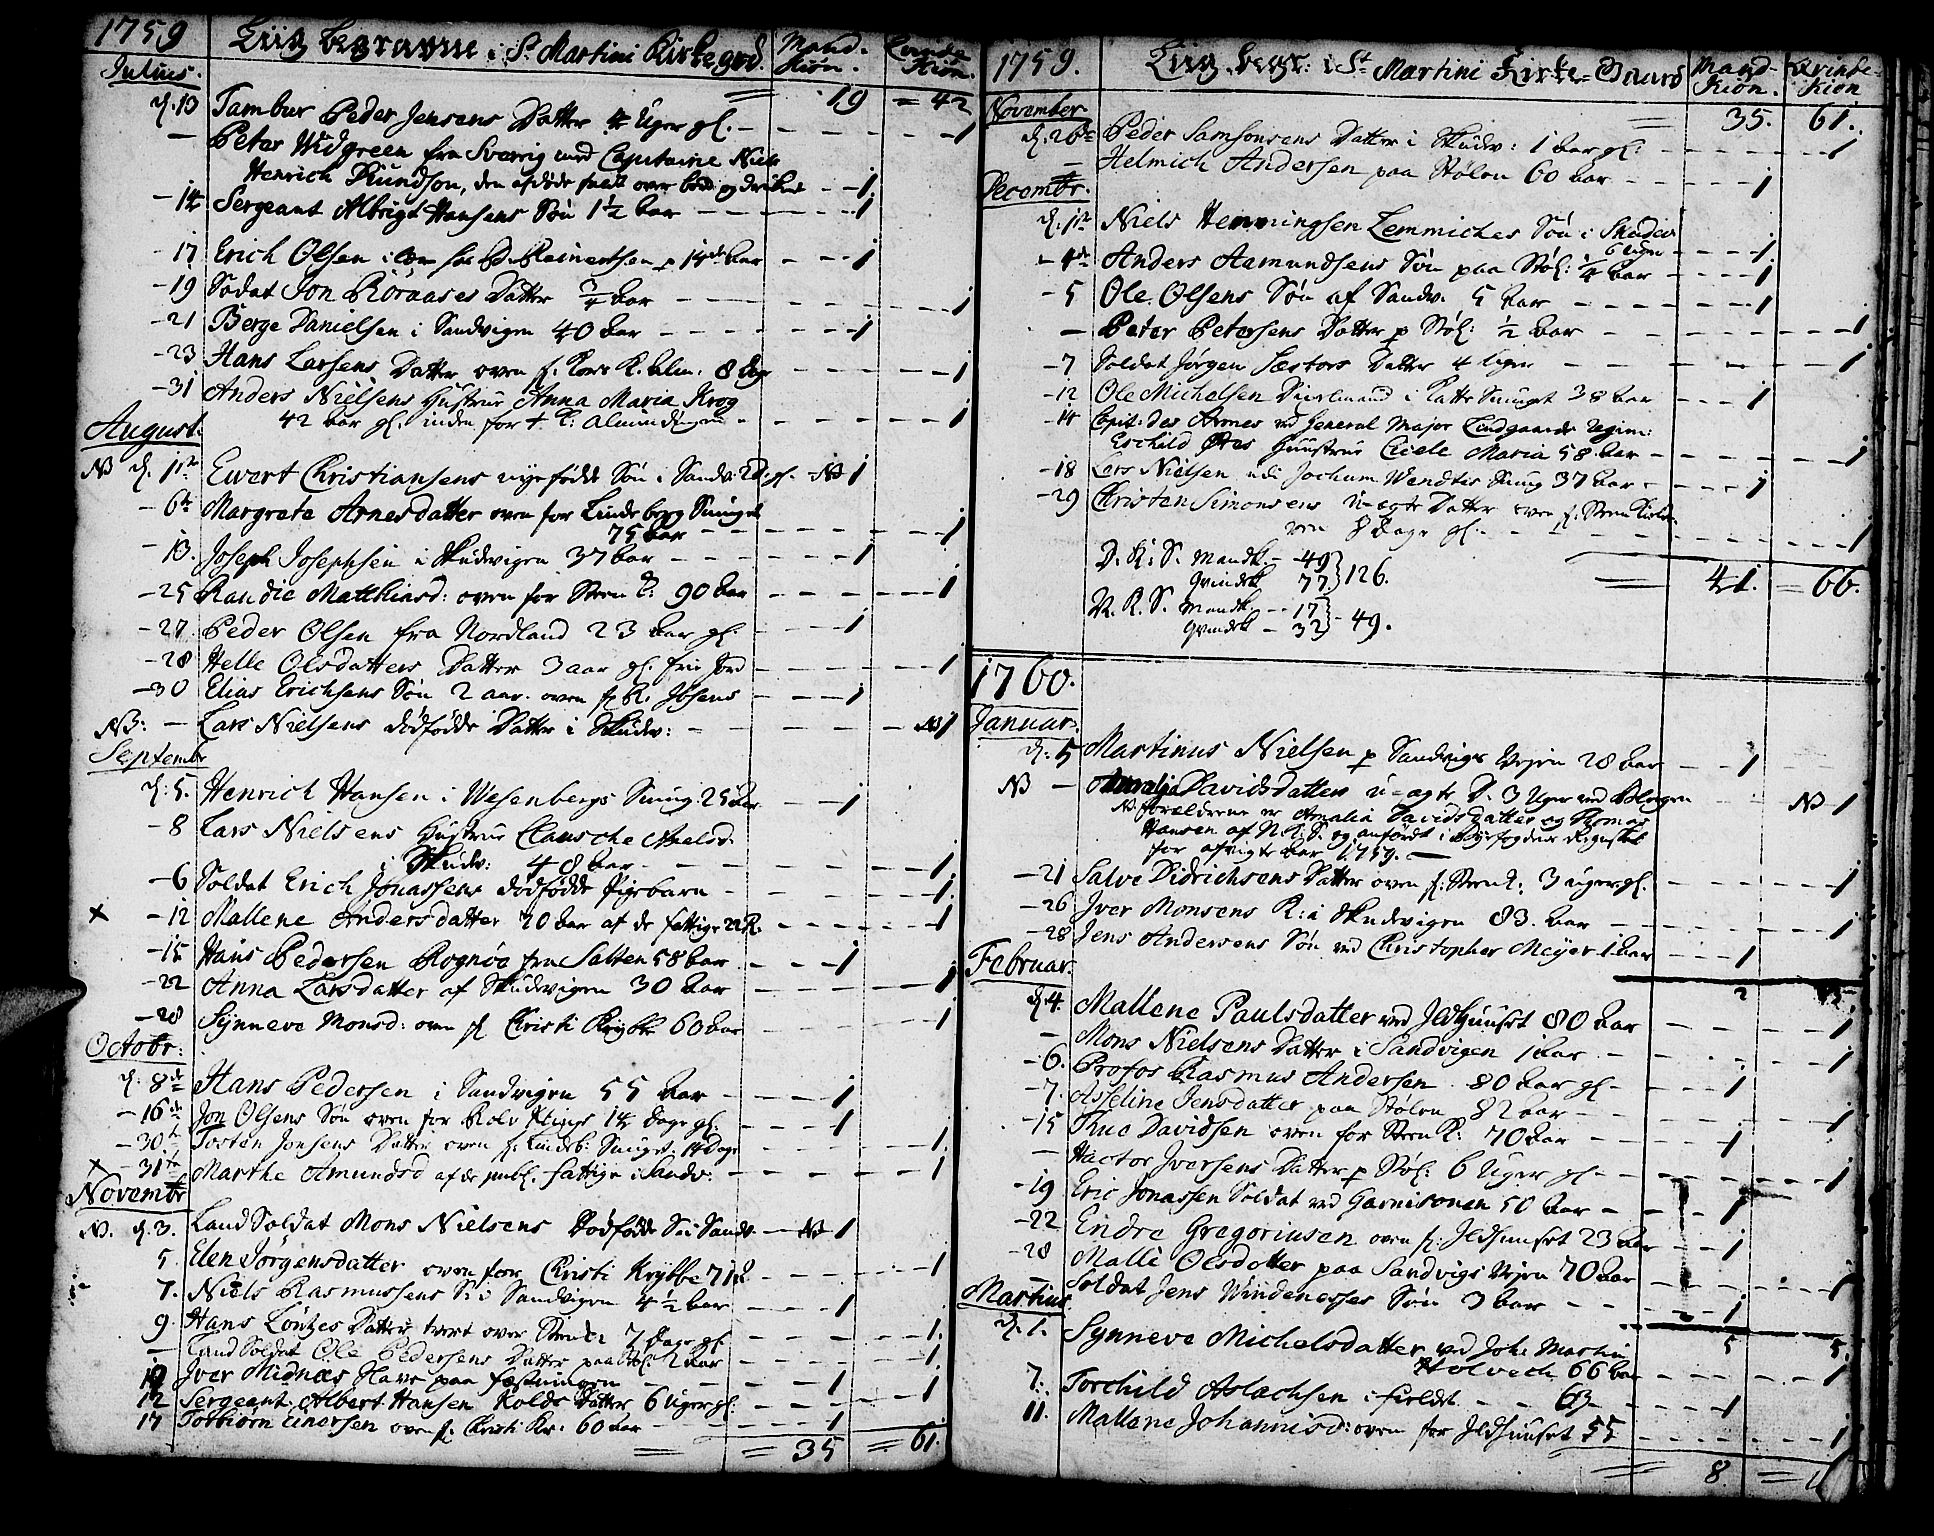 1759 Liig begravne i St Martini Kirkegrd. Mand-Kiøn. Qvinde Kiøn.
Julius. 19 = 42
d. 13 Tambur Peder Jensens Datter 4 Uger gl. 1
— Peter Widgreen fra Sverrig med Capitaine Niels
Henrich Knudson, den afdøde faldt over bord og druknet 1
14 Sergeant Albrigt Hansens Søn 1½ aar 1
17 Erich Olsen i Reinertsen p 14 de aar 1
19 Soldat Jon Röraases Datter ¾ aar 1
21 Berge Danielsen i Sandvigen 40 aar 1
23 Hans Larsens Datter oven f. Kors K. Alm: 8 Uger 1
31 Anders Nielsens Hustrue Anna Maria Krog
42 aar gl. inden for + K: Almindingen 1
August.
NB d. 1ste Ewert Christiansens nyefødde Søn i Sandv: 2 d. gl. NB 1
6te Margrete Arnesdatter oven for Lindeberg Smuget
75 aar 1
13. Joseph Josephsen i Skudvigen 37 aar 1
25 Randie Matthiasd: oven for Steen K: 90 aar 1
27. Peder Olsen fra Nordland 23 aar gl. 1
28 Helle Olsdatters Datter 3 aar gl. frie Jord 1
30 Elias Erichsens Søn 2 aar. oven f. R. Ibsens 1
NB: — Lars Nielsens dödfödde Datter i Skudv: NB 1
Septembr
d. 5. Henrich Hansen i Wesenbergs Smug: 25 aar 1
8 Lars Nielsens Hustrue Clausche Neelsd.
i Skudv: 48 aar 1
6 Soldat Erich Jonassens dødfødde Pigebarn 1
x 12 Mallene Andersdatter 70 aar af de fattige NK. 1
15 Hans Pedersen Rognøe fra Salten 58 aar 1
22 Anna Larsdatter af Skudvigen 30 aar 1
28 Synneve Monsd: oven f Christi Krybbe 60 aar 1
Octobr:
d. 8de Hans Pedersen i Sandvigen 55 aar 1
16de Jon Olsens Søn oven for Rolv Klips 14 dage gl. 1
30te Torsten Jonsens Datter oven f. Lindeb: Smuget 14 Dage 1
x 31te Marthe Amundsd af de publ. fattige i Sandv: 1
Novembr
N. d. 3. Land Soldat Mons Nielsens Dødfødde S: i Sandv. NB 1
5. Elen Jörgensdatter oven for Christi Krybbe 71 1
7. Niels Rasmussens S: i Sandvigen 4½ aar 1
9. Hans Löntzes Datter tvert over Steen K 7 dage gl 1.
— Land Soldat Ole Pedersens Datter paa Støl: 2 aar 1
10 Iver Midnæs Slave paa fæstningen 1
12 Sergeant Albert Hansen Kolds Datter 6 Uger gl. 1
17 Torbiörn Einersen oven f. Christi Kr: 60 aar 1
= 35 = 61.
1759. Liig begr: i St Martini Kirke-Gaard Mand-Kiøn. Qvinde-Kiøn
November 35. 61.
d. 26de Peder Samsonsens Datter i Skudv: 1 aar gl: 1
— Helmich Andersen paa Stølen 60 aar 1
Decembr.
d. 1ste Niels Hemmingsen Lemmiches Søn i Skudev
6 Uger 1
4de Anders Aamundsens Søn paa Støl: ¼ aar 1
5 Ole Olsens Søn af Sandv. 5 aar 1
— Peter Petersens Datter p Støl: ½ aar 1
7 Soldat Jørgen Sæsters Datter 4 Uger 1
12 Ole Michelsen Diurlmand i Katte Smuget 38 aar 1
14 Capit: Des Armes ved General Major Lindgaards Regim:
Eschild Huustrue Cicele Maria 58 aar 1
18 Lars Nielsen udi Jochum Wendtes Smug 37 aar 1
29 Christen Simonsens u-ægte Datter oven f. Steen Kirken
8 Dage gl. 1
D. K: S. Mandk. – 49
Qvindek 77. } 126.
N. K. S. Mandk. – 17
Qvindek – 32 } – 49.
41. = 66.
1760.
Januar.
d. 5 Martinus Nielsen p Sandvigs Vejen 28 aar 1
NB — Amalia Davidsdatters u-ægte D. 3 Uger ved NB 1
NB forældrene er Amalia Davidsdatter og Thomas
Hansen af N: K: S. og anført i Byefogdens Register
for afvigte aar 1759.
21 Salve Didrichsens Datter oven f. Steen K: 3 uger gl. 1
26 Iver Monsens K: i Skudvigen 83. aar 1
28 Jens Andersens Søn ved Christopher Meyer 1 aar 1
Februar. 2
d. 4 Mallene Paulsdatter ved Ildhuuset 80 aar 1
— Mons Nielsens Datter i Sandvigen 1 aar 1
6. Profos Rasmus Andersen 80 aar gl 1
7. Asseline Jensdatter paa Stølen 82 aar 1
15 Thue Davidsen oven for Steen K: 70 aar 1
— Hactor Iversens Datter p Støl: 6 Uger gl 1
19 Eric Jonassen Soldat ved Garnisonen 50 aar 1
22 Endre Gregoriusen oven f. Ildhuuset 23 aar 1
28 Malle Olsdatter paa Sandvigs Vejen 70 aar 1
— Soldat Jens Windenesses Søn 3 aar 1
Martius 5 5.
d. 1. Synneve Michelsdatter ved Joh: Martin
Holveck 66 aar 1
7. Torchild Aslachsen i fieldet 63 1
11. Mallene Johannisd: oven for Ildhuuset 55 1
8.